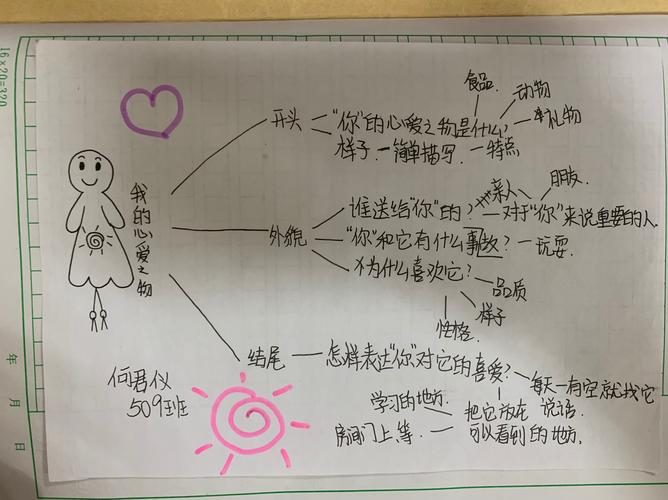 16×20=320
年 月 日
我的心爱之物
何君仪
509班
开头
"你"的心爱之物是什么
食品
动物
礼物
样子 一简单描写 一特点
外貌
谁送给"你"的?
亲人
朋友
对于"你"来说重要的人
"你"和它有什么事故?一玩耍
为什么喜欢它?
品质
样子
性格
结尾
怎样表达"你"对它的喜爱?
每天一有空就找它
说话
把它放在
可以看到的地方
学习的地方
房间门上等